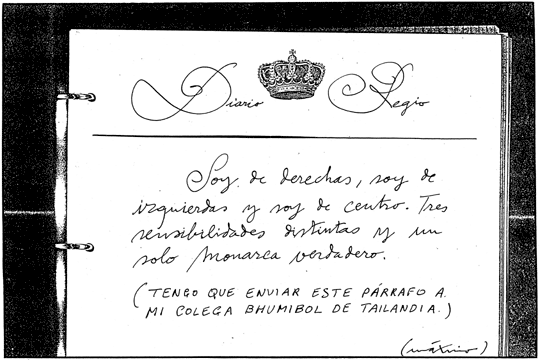 Diario Regio
Soy de derechas, soy de
izquierdas y soy de centro. Tres
sensibilidades distintas y un
solo monarca verdadero.
(TENGO QUE ENVIAR ESTE PÁRRAFO A
MI COLEGA BHUMIBOL DE TAILANDIA.)
(máximo)